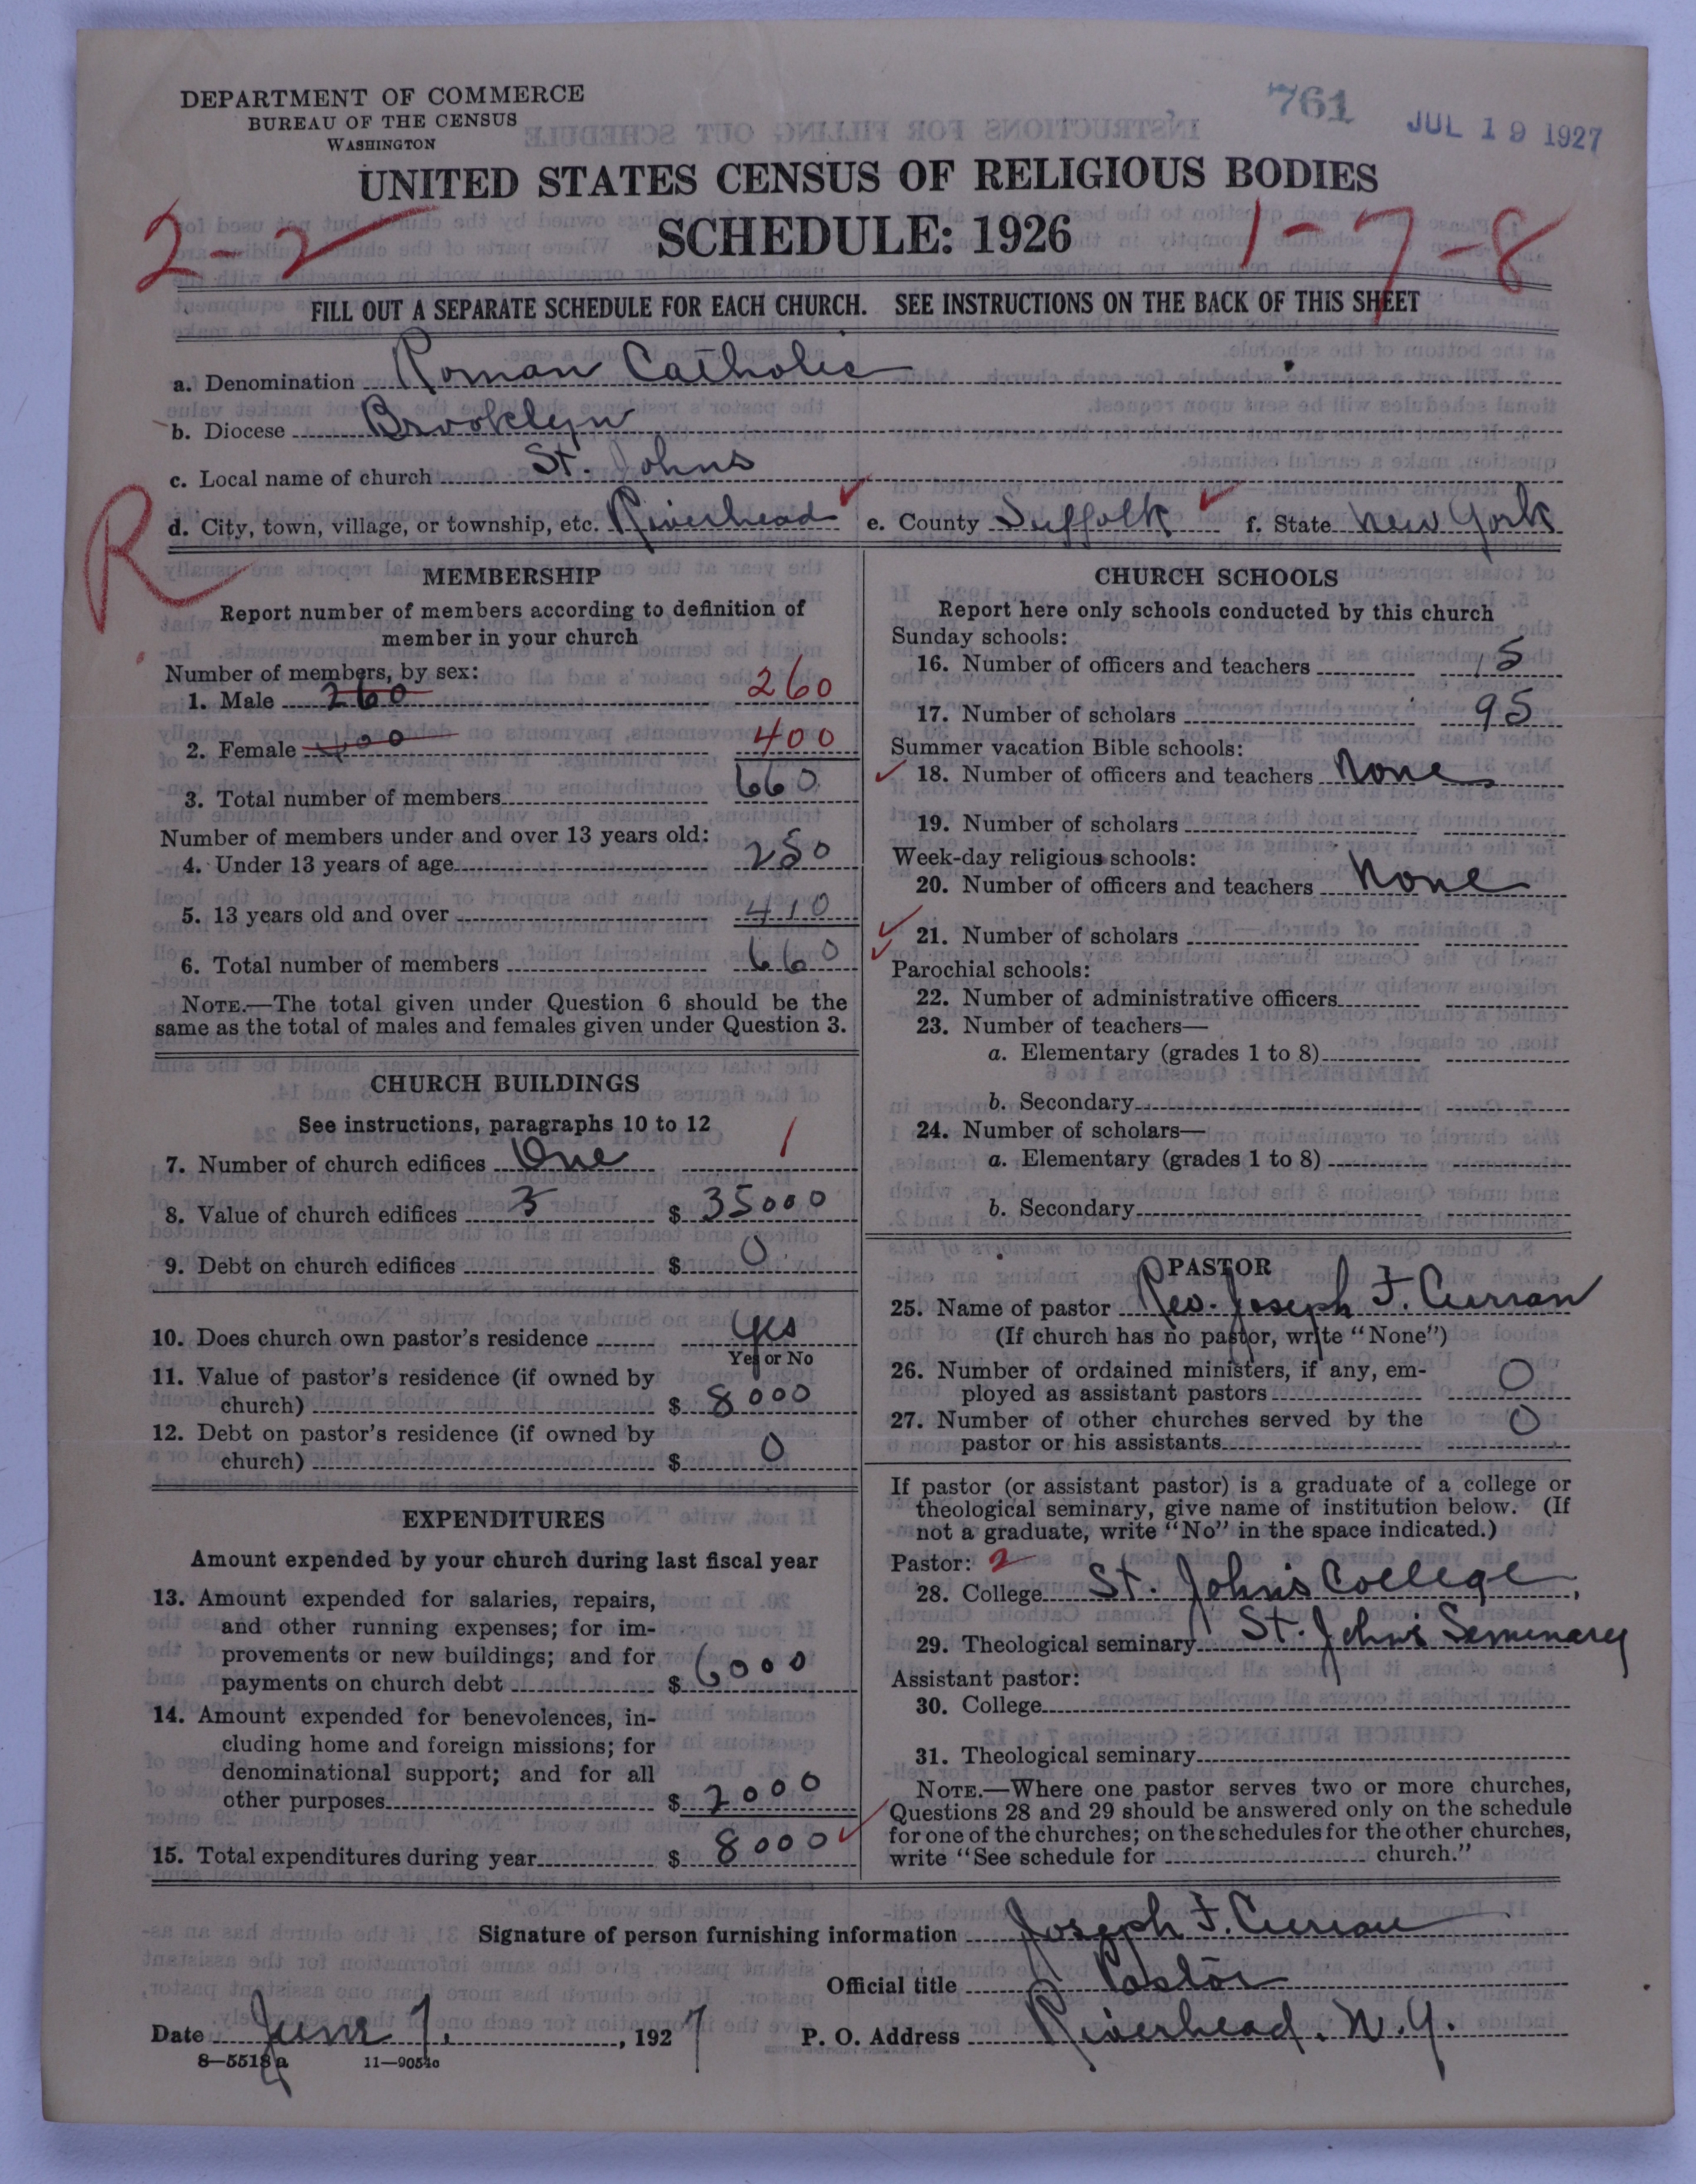 DEPARTMENT OF COMMERCE
BUREAU OF THE CENSUS
WASHINGTON
761
JUL 19 1927
UNITED STATES CENSUS OF RELIGIOUS BODIES
SCHEDULE: 1926
2-2
1-7-8
FILL OUT A SEPARATE SCHEDULE FOR EACH CHURCH. SEE INSTRUCTIONS ON THE BACK OF THIS SHEET
a. Denomination Roman Catholic
b. Diocese Brooklyn
c. Local name of church St. Johns
R
d. City, town, village, or township, etc. Riverhead e. County Suffolk f. State New York
MEMBERSHIP
Report number of members according to definition of
member in your church
Number of members, by sex:
1. Male 260 260
2. Female 400 400
3. Total number of members 660
Number of members under and over 13 years old:
4. Under 13 years of age 250
5. 13 years old and over 410
6. Total number of members 660
NOTE.—The total given under Question 6 should be the
same as the total of males and females given under Question 3.
CHURCH BUILDINGS
See instructions, paragraphs 10 to 12
7. Number of church edifices One 1
8. Value of church edifices $ 35000
9. Debt on church edifices $ 0
10. Does church own pastor's residence Yes
Yes or No
11. Value of pastor's residence (if owned by
church) $ 8000
12. Debt on pastor's residence (if owned by
church) $ 0
EXPENDITURES
Amount expended by your church during last fiscal year
13. Amount expended for salaries, repairs,
and other running expenses; for im-
provements or new buildings; and for
payments on church debt $ 6000
14. Amount expended for benevolences, in-
cluding home and foreign missions; for
denominational support; and for all
other purposes $ 2000
15. Total expenditures during year $ 8000
CHURCH SCHOOLS
Report here only schools conducted by this church
Sunday schools:
16. Number of officers and teachers 5
17. Number of scholars 95
Summer vacation Bible schools:
18. Number of officers and teachers None
19. Number of scholars
Week-day religious schools:
20. Number of officers and teachers None
21. Number of scholars
Parochial schools:
22. Number of administrative officers
23. Number of teachers—
a. Elementary (grades 1 to 8)
b. Secondary
24. Number of scholars—
a. Elementary (grades 1 to 8)
b. Secondary
PASTOR
25. Name of pastor Rev. Joseph F. Curran
(If church has no pastor, write "None")
26. Number of ordained ministers, if any, em-
ployed as assistant pastors 0
27. Number of other churches served by the
pastor or his assistants 0
If pastor (or assistant pastor) is a graduate of a college or
theological seminary, give name of institution below. (If
not a graduate, write "No" in the space indicated.)
Pastor: 2
28. College St. John's College,
29. Theological seminary St. John's Seminary
Assistant pastor:
30. College
31. Theological seminary
NOTE.—Where one pastor serves two or more churches,
Questions 28 and 29 should be answered only on the schedule
for one of the churches; on the schedules for the other churches,
write "See schedule for church."
Signature of person furnishing information Joseph F. Curran
Official title Pastor
Date June 7, 1927 P. O. Address Riverhead, N.Y.
8—5518a 11—9054c